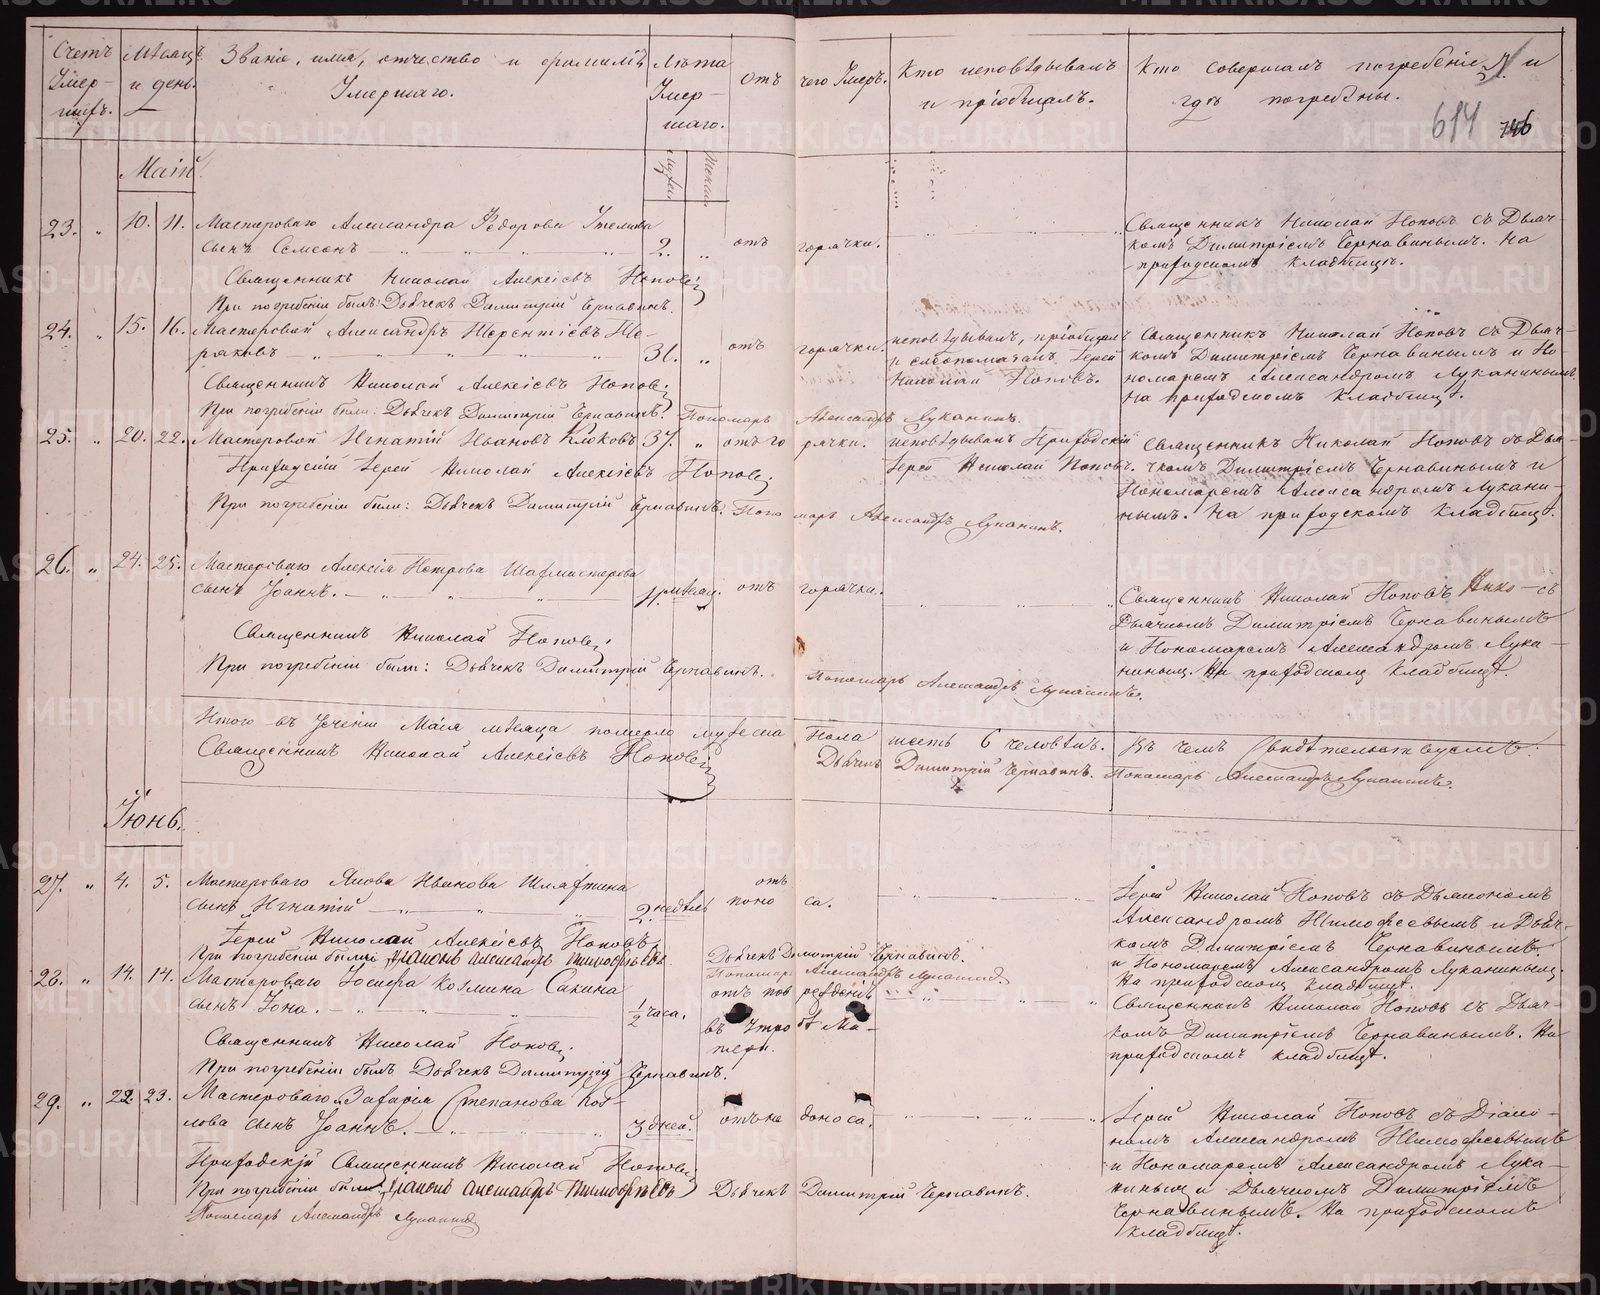 Счетъ Умер-шихъ.
Мѣсяцъ и день.
Званіе, имя, отчество и фамилія Умершаго.
Лѣта Умер-шаго.
Отъ чего Умеръ.
Кто исповѣдывалъ и пріобщалъ.
Кто совершалъ погребеніе и гдѣ погребены.
614 746
Май
23. " 10. 11. Мастероваго Александра Ѳедорова
сынъ Семенъ 2. " отъ горячки.
Священникъ Николай Поповъ съ Дьяч-
комъ Димитріемъ Чернавинымъ. На
приходскомъ кладбищѣ.
Священникъ Николай Алексіевъ Поповъ
При погребеніи былъ: Дьячекъ Димитрій Чернавинъ.
24. " 15. 16. Мастеровой Александръ Терентіевъ
31. " отъ горячки.
исповѣдывалъ, пріобщалъ
и Іерей
Николай Поповъ.
Священникъ Николай Поповъ съ Дьяч-
комъ Димитріемъ Чернавинымъ и По-
номаремъ Александромъ Луканинымъ.
На приходскомъ кладбищѣ.
Священникъ Николай Алексіевъ Поповъ
При погребеніи были: Дьячекъ Димитрій Чернавинъ. Пономарь Александръ Луканинъ.
25. " 20. 22. Мастеровой Игнатій Ивановъ 37. " отъ горячки.
исповѣдывалъ Приходскій
Іерей Николай Поповъ.
Священникъ Николай Поповъ съ Дья-
чкомъ Димитріемъ Чернавинымъ и
Пономаремъ Александромъ Лукани-
нымъ. На приходскомъ кладбищѣ.
Приходскій Іерей Николай Алексіевъ Поповъ
При погребеніи были: Дьячекъ Димитрій Чернавинъ. Пономарь Александръ Луканинъ.
26. " 24. 25. Мастероваго Алексія Петрова
сынъ Іоаннъ. мѣсяц. отъ горячки.
Священникъ Николай Поповъ съ
Дьячкомъ Димитріемъ Чернавинымъ
и Пономаремъ Александромъ Лука-
нинымъ. На приходскомъ кладбищѣ.
Священникъ Николай Поповъ
При погребеніи были: Дьячекъ Димитрій Чернавинъ.
Пономарь Александръ Луканинъ.
Итого въ теченіи Маія мѣсяца померло мужеска Пола шесть 6 человѣкъ. Въ чемъ свидѣтельствуемъ:
Священникъ Николай Алексіевъ Поповъ
Дьячекъ Димитрій Чернавинъ. Пономарь Александръ Луканинъ.
Іюнь.
27. " 4. 5. Мастероваго Якова Иванова Шляхтина
сынъ Игнатій 2 недѣль отъ поноса.
Іерей Николай Поповъ съ Дьякономъ
Александромъ Тимофеевымъ и Дьяч-
комъ Димитріемъ Чернавинымъ
и Пономаремъ Александромъ Луканинымъ.
На приходскомъ кладбищѣ.
Іерей Николай Алексіевъ Поповъ
При погребеніи были: Діаконъ Александръ Тимофѣевъ
Дьячекъ Димитрій Чернавинъ.
Пономарь Александръ Луканинъ.
28. " 14. 14. Мастероваго Іосифа Козмина Сакина
сынъ Іона. 1/2 часа.
отъ поврежденія
въ Утробѣ Ма-
тери.
Священникъ Николай Поповъ съ Дьяч-
комъ Димитріемъ Чернавинымъ. На
приходскомъ кладбищѣ.
Священникъ Николай Поповъ
При погребеніи былъ Дьячекъ Димитрій Чернавинъ.
29. " 22. 23. Мастероваго Захарія Степанова Коз-
лова сынъ Іоаннъ. 3 дней. отъ недоноса.
Іерей Николай Поповъ съ Діако-
номъ Александромъ Тимофеевымъ
и Пономаремъ Александромъ Лука-
нинымъ и Дьячкомъ Димитріемъ
Чернавинымъ. На приходскомъ
кладбищѣ.
Приходскій Священникъ Николай Поповъ
При погребеніи были Діаконъ Александръ Тимофѣевъ Дьячекъ Димитрій Чернавинъ.
Пономарь Александръ Луканинъ
METRIKI.GASO-URAL.RU